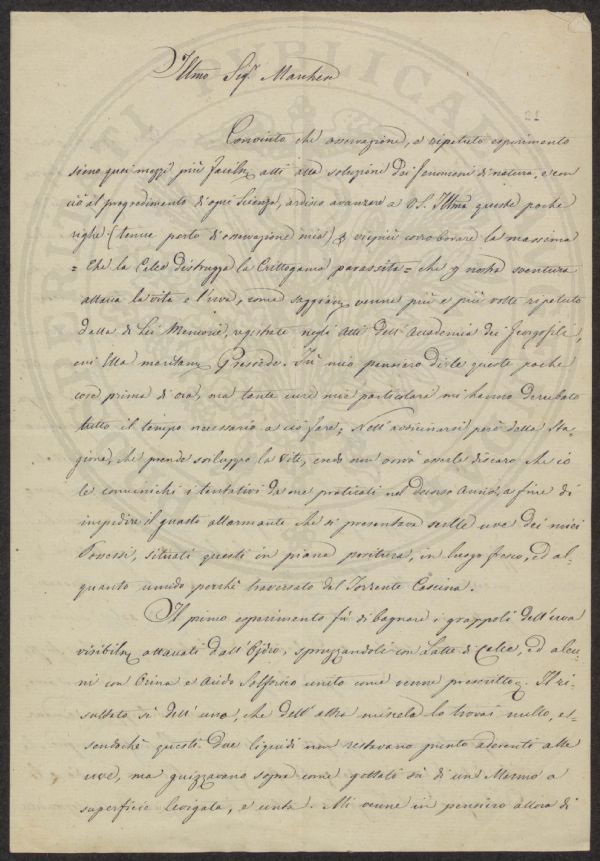 21
Illmo Sig.r Marchese
Convinto che osservazione, e ripetuto esperimento
sieno quei mezzi più facilm. atti alla soluzione dei fenomeni di natura, e con
ciò il progredimento di ogni Scienza, ardisco avanzare a V.S. Illma queste poche
righe (tenue parto di osservazione mia) vieppiù corroborare la massima
= Che la Calce distrugga la Crittogama parassita = che p nostra sventura
attacca la vite e l'uva, come venne più e più volte ripetuto
dalla di Lei Memorie, registrate negli Atti dell'Accademia dei Georgofili,
cui Ella meritam. Presiede. Fù mio pensiero dirle queste poche
cose prima di ora, ma tante cure mie particolari mi hanno derubato
tutto il tempo necessario a ciò fare; Nell'avvicinarsi però della Sta-
gione, che prende sviluppo la Vite, credo non verrà esserle discaro che io
le comunichi i tentativi da me praticati nel decorso Anno, a fine di
impedire il guasto allarmante che si presentava sulle uve dei miei
Possessi, situati questi in piana positura, in luogo fresco, ed al-
quanto umido perchè traversato dal Torrente Cascina.
Il primo esperimento fù di bagnare i grappoli dell'uva
visibilm. attaccati dall'Ojdio, spruzzandoli con Latte di Calce, ed alcu-
ni con Orina e Acido Solforico unito come venne prescritto. Il ri-
sultato sì dell'una, che dell'altra miscela lo trovai nullo, es-
sendochè questi due liquidi non restavano punto aderenti alle
uve, ma guizzavano sopra come gettati sù di un Marmo a
superficie levigata, e unta. Mi venne in pensiero allora di